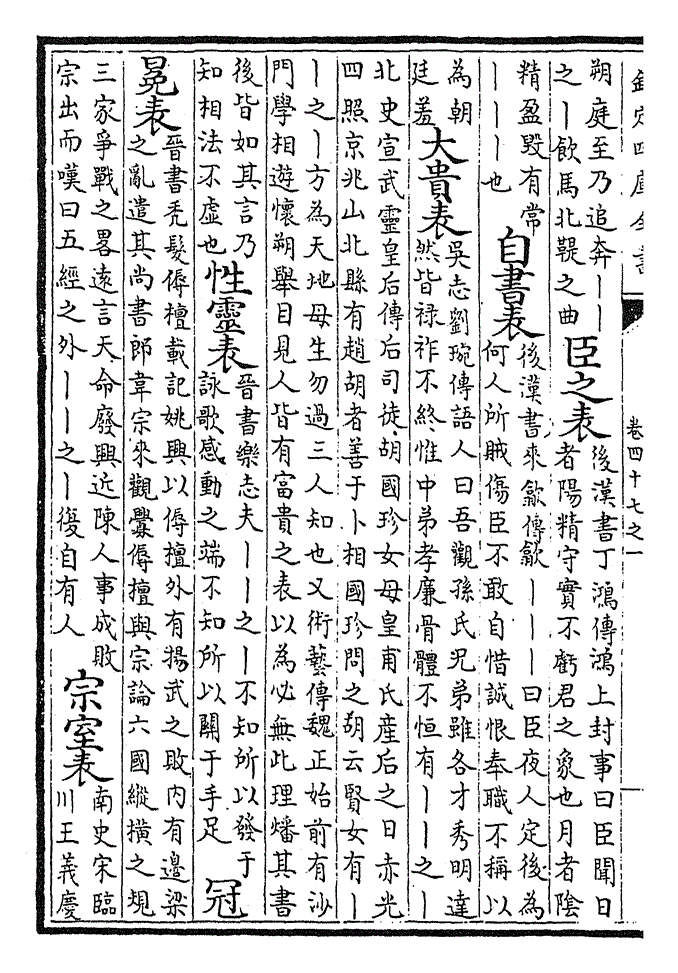 欽定四庫全書
卷四十七之一
朔庭至乃追奔丨丨
之丨飲馬北鞮之曲
臣之表
後漢書丁鴻傳鴻上封事曰臣聞日
者陽精守實不虧君之象也月者陰
精盈毀有常
丨丨丨也
自書表
後漢書來歙傳歙丨丨丨曰臣夜人定後為
何人所賊傷臣不敢自惜誠恨奉職不稱以
為朝
廷羞
大貴表
吳志劉琬傳語人曰吾觀孫氏兄弟雖各才秀明達
然皆禄祚不終惟中弟孝廉骨體不恒有丨丨之丨
北史宣武靈皇后傳后司徒胡國珍女母皇甫氏産后之日赤光
四照京兆山北縣有趙胡者善于卜相國珍問之胡云賢女有丨
丨之丨方為天地母生勿過三人知也又術藝傳魏正始前有沙
門學相遊懷朔舉目見人皆有富貴之表以為必無此理燔其書
後皆如其言乃
知相法不虛也
性靈表
晉書樂志夫丨丨之丨不知所以發于
詠歌感動之端不知所以關于手足
冠
冕表
晉書秃髮傉檀載記姚興以傉檀外有揚武之敗内有邊梁
之亂遣其尚書郎韋宗來觀釁傉檀與宗論六國縱横之規
三家爭戰之畧遠言天命廢興近陳人事成敗
宗出而嘆曰五經之外丨丨之丨復自有人
宗室表
南史宋臨
川王義慶